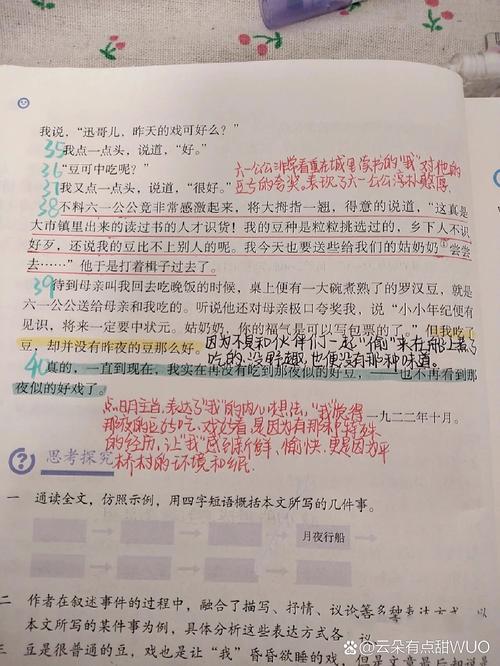 我说，“迅哥儿，昨天的戏可好么？”
35 我点一点头，说道，“好。”
36 “豆可中吃呢？”
37 我又点一点头，说道，“很好。”
六一公公非常看重在城里读书的“我”对他的
豆的夸奖。表现了六一公公淳朴憨厚
38 不料六一公公竟非常感激起来，将大拇指一翘，得意的说道，“这真是
大市镇里出来的读过书的人才识货！我的豆种是粒粒挑选过的，乡下人不识
好歹，还说我的豆比不上别人的呢。我今天也要送些给我们的姑奶奶①尝尝
去……”他于是打着楫子过去了。
39 待到母亲叫我回去吃晚饭的时候，桌上便有一大碗煮熟了的罗汉豆，就是
六一公公送给母亲和我吃的。听说他还对母亲极口夸奖我，说“小小年纪便有
见识，将来一定要中状元。姑奶奶，你的福气是可以写包票的了。”但我吃了
豆，却并没有昨夜的豆那么好。
因为不是和伙伴们一起“偷”来在船上煮了
吃的，没野趣，也便没有那种味道。
40 真的，一直到现在，我实在再没有吃到那夜似的好豆，——也不再看到那
夜似的好戏了。
一九二二年十月。
点明主旨，表达了“我”的内心想法，“我”觉得
那夜的豆好吃，戏好看，是因为有那样特殊
的经历，让“我”感到新鲜、愉快，更是因为平
桥村的环境和
思考探究
一 通读全文，仿照示例，用四字短语概括本文所写的几件事。
月夜行船
二 作者在叙述事件的过程中，融合了描写、抒情、议论等多种表达方式。以
本文所写的某件事为例，具体分析这些表达方式各
三 豆是很普通的豆，戏也是让“我”昏昏欲睡的戏，但是文章最后却说
头条 @云朵有点甜WUO